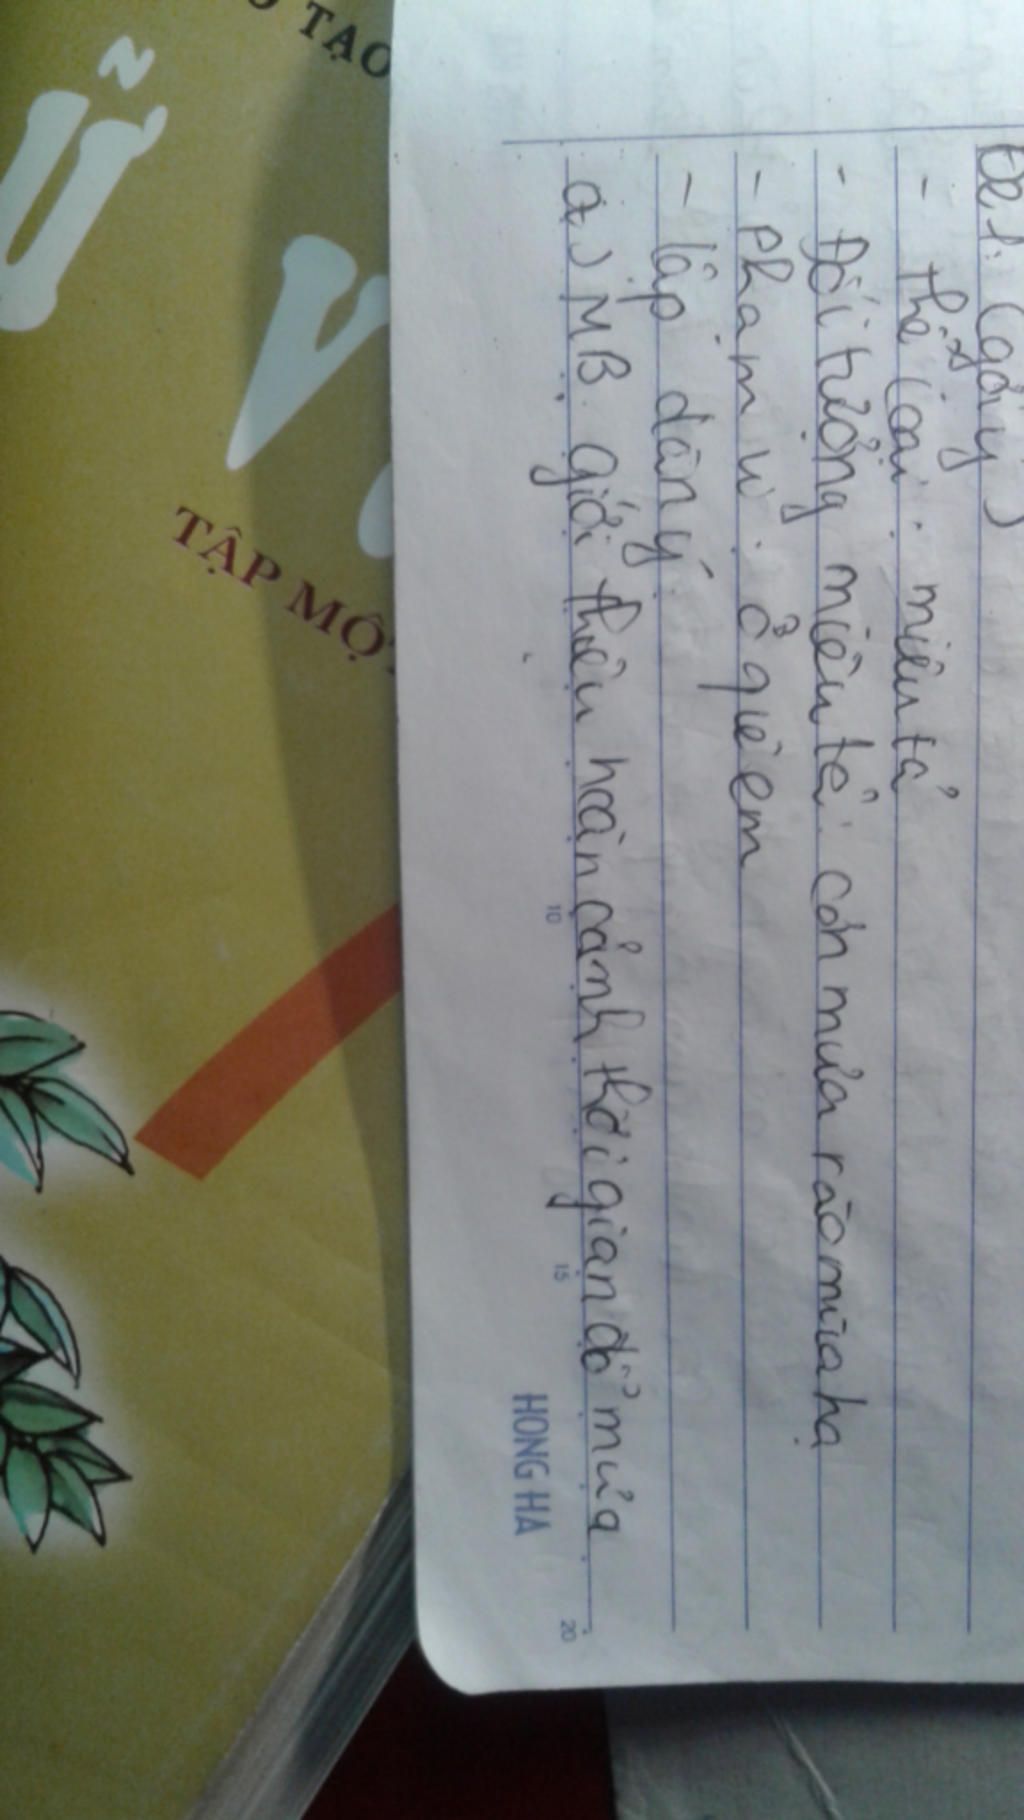 TẠO
Ữ V
TẬP MỘT
Đề 1: (gợi ý)
- thể loại: miêu tả
- Đối tượng miêu tê: cơn mưa rào mùa hạ
- Phạm vi: ở quê em
- lập dàn ý
a) MB. giới thiệu hoàn cảnh thời gian đổ mưa
10
15
20
HONG HA